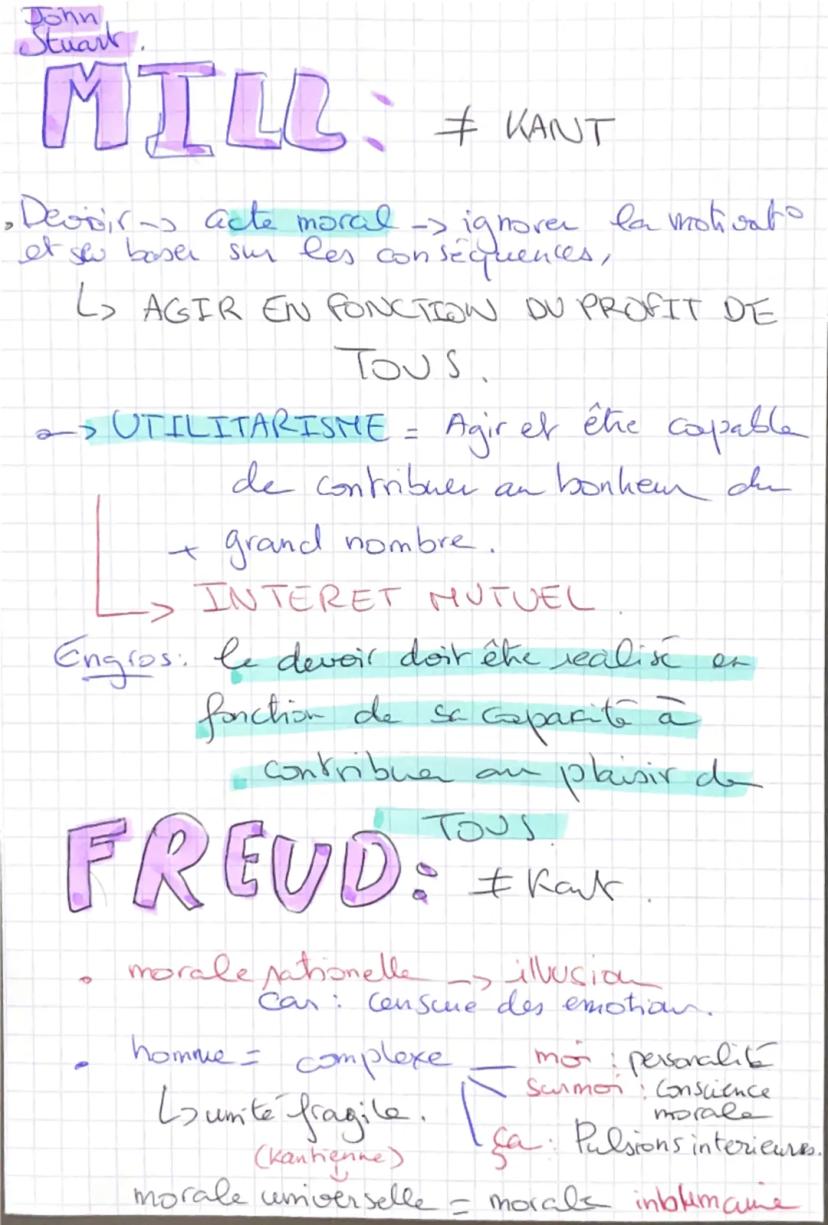 John
Stuart.
MILL: ≠ KANT
, Devoir -> acte moral -> ignorer la motivat°
et se baser sur les conséquences,
↳ AGIR EN FONCTION DU PROFIT DE
TOUS.
-> UTILITARISME = Agir et être capable
de contribuer au bonheur du
+ grand nombre.
↳ INTERET MUTUEL.
Engros: le devoir doit être realisé en
fonction de sa capacité à
contribuer au plaisir de
TOUS.
FREUD: ≠ Kant.
• morale rationelle -> illusion
Car : censure des emotions.
• homme = complexe — moi : personalité
surmoi : conscience
morale
↳ unité fragile.
ça : Pulsions interieures.
(kantienne)
morale universelle = morale inhumaine